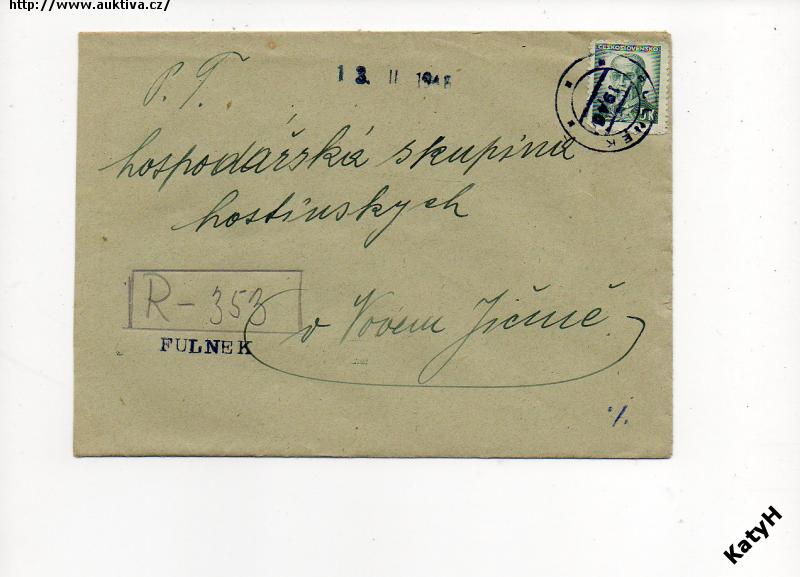 http://www.auktiva.cz/
P. T.
13. II 1946
ČESKOSLOVENSKO
5K
FULNEK
1946
hospodářská skupina
hostinskych
R - 353
FULNEK
v Novém Jičíně
./.
KatyH